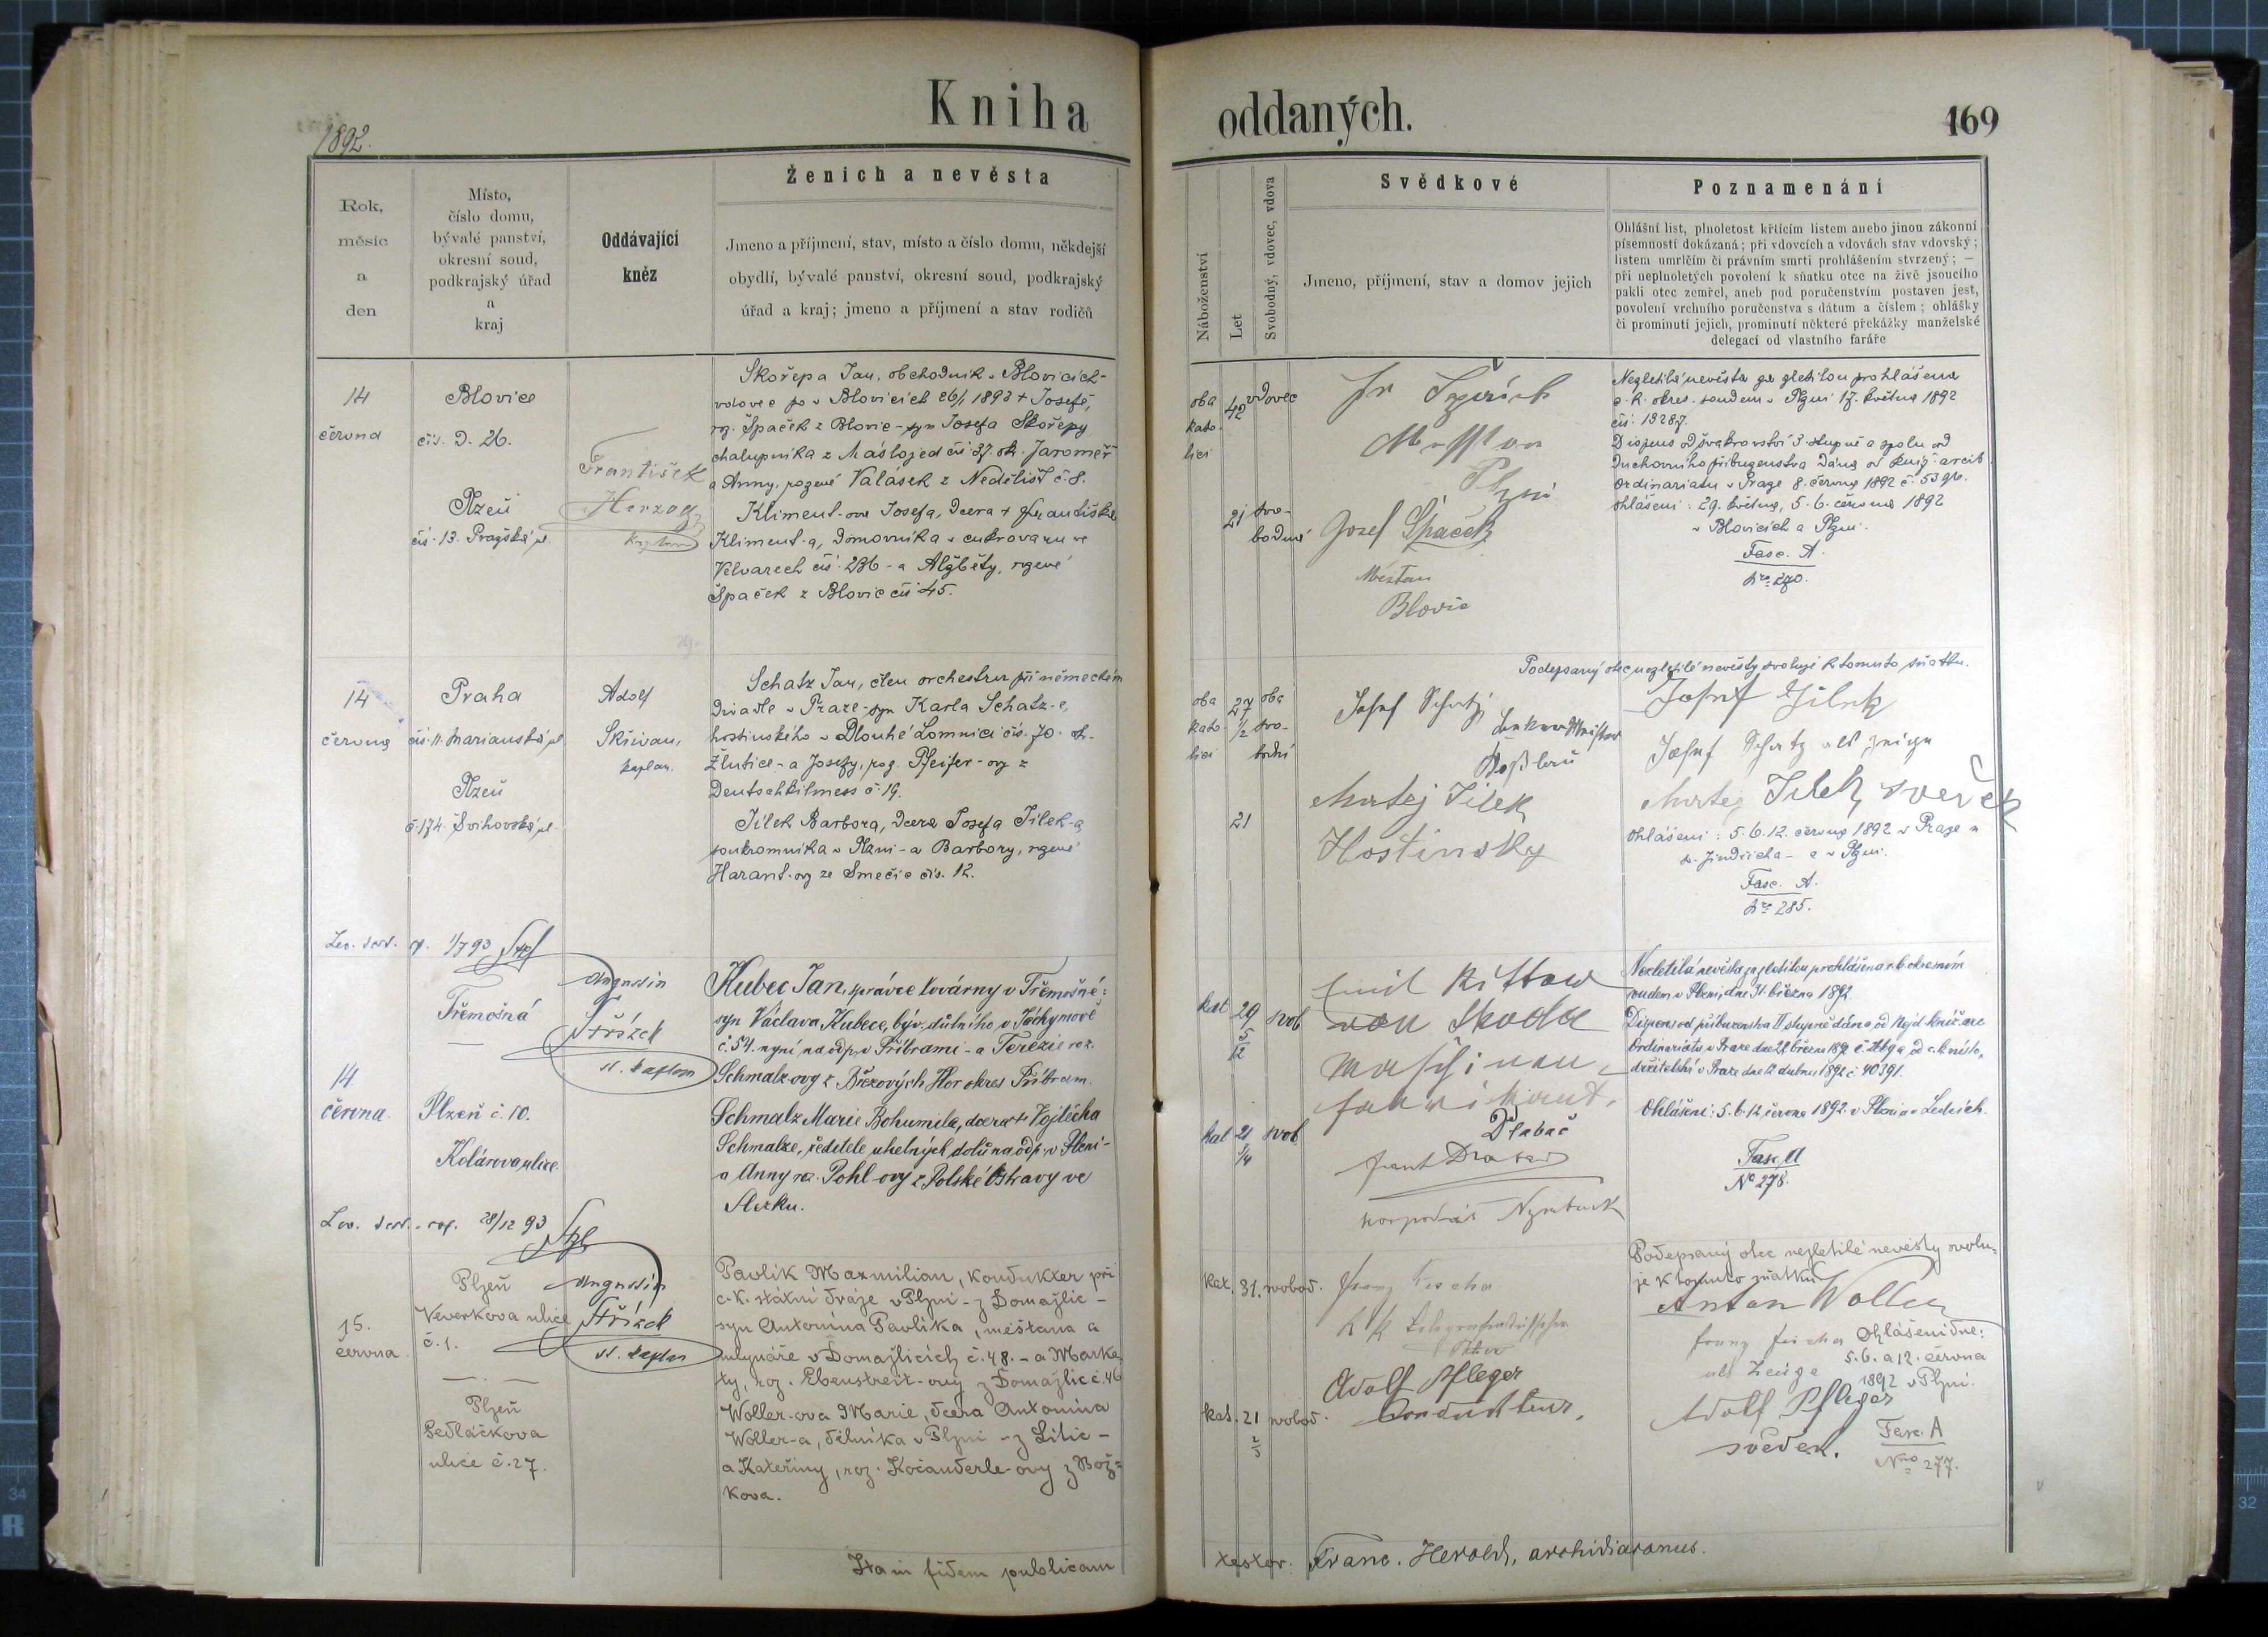 Kniha
oddaných.
169
1892.
Rok,
měsíc
a
den
Místo,
číslo domu,
bývalé panství,
okresní soud,
podkrajský úřad
a
kraj
Oddávající
kněz
Ženich a nevěsta
Jmeno a příjmení, stav, místo a číslo domu, někdejší
obydlí, bývalé panství, okresní soud, podkrajský
úřad a kraj; jmeno a příjmení a stav rodičů
Náboženství
Let
Svobodný, vdovec, vdova
Svědkové
Jmeno, příjmení, stav a domov jejich
Poznamenání
Ohlášní list, plnoletost křticím listem anebo jinou zákonní
písemností dokázaná; při vdovcích a vdovách stav vdovský;
listem umrlčím či právním smrti prohlášením stvrzený; —
při neplnoletých povolení k sňatku otce na živě jsoucího
pakli otec zemřel, aneb pod poručenstvím postaven jest,
povolení vrchního poručenstva s dátum a číslem; ohlášky
či prominutí jejich, prominutí některé překážky manželské
delegací od vlastního faráře
14
června
Blovice
čís. D. 26.
Plzeň
čís. 13. Pražská ul.
František
Herzog
kaplan
Skořepa Jan, obchodník v Blovicích-
vdovec po v Blovicích 26/1 1892 + Josefě,
roz. Špaček z Blovic - syn Josefa Skořepy
chalupníka z Máslojed čís 27. ok. Jaroměř
a Anny, rozené Valásek z Nedělišť č. 8.
Kliment-ova Josefa, dcera + Františka
Kliment-a, domovníka v cukrovaru ve
Velvarech čís. 236 - a Alžběty, rozené
Špaček z Blovic čís 45.
oba
kato-
líci
42
vdovec
21
svo-
bodná
Měšťan
Plzni
Josef Špaček
Měšťan
Blovic
Nezletilá nevěsta za zletilou prohlášena
c. k. okres. soudem v Plzni 17. května 1892
čís. 13287.
Dispens od švakrovství 3. stupně a spolu od
duchovního příbuzenstva dána od kníž. arcib.
Ordinariatu v Praze 8. června 1892 č.
ohlášeni: 29. května, 5. 6. června 1892
v Blovicích a Plzni.
Fasc. A.
Nro 270.
14
června
Praha
čís. 11. Marianská ul.
Plzeň
č. 174. Švihovská ul.
Adolf
Skřivan,
kaplan.
Schatz Jan, člen orchestru při německém
divadle v Praze - syn Karla Schatz-e,
hostinského v Dlouhé Lomnici čís. 70. ok.
Žlutice - a Josefy, roz. Pfeifer-ovy z
Deutschkilmess č. 19.
Jílek Barbora, dcera Josefa Jílek-a,
soukromníka v Plzni - a Barbory, rozené
Harant-ovy ze Smečic čís. 12.
oba
kato-
líci
27
1/2
oba
svo-
bodní
21
Josef Schatz
Matej Jilek
Hostinsky
Podepsaný otec nezletilé nevěsty svoluje k tomuto sňatku.
Josef Jilek
Josef Schatz als Zeuge
Matej Jilek, svědek
ohlášeni: 5. 6. 12. června 1892 v Praze u
sv. Jindřicha - a v Plzni.
Fasc. A.
Nro 285.
1/7 93
14.
června.
Třemošná
Plzeň č. 10.
Kolárova ulice.
Augustin
Střízek
st. kaplan
Kubec Jan, správce továrny v Třemošné:
syn Václava Kubece, býv. důlního v Jáchymově
č. 54. nyní na odp. v Příbrami - a Terezie roz.
Schmalz-ovy z Březových Hor okres Příbram.
Schmalz Marie Bohumila, dcera + Vojtěcha
Schmalze, ředitele uhelných dolů na odp. v Plzni -
a Anny roz. Pohl-ovy z Polské Ostravy ve
Slezku.
kat
29
5
12
svob
kat
21
1/4
svob.
Emil Ritter
von Skoda
Maschinen-
fabrikant.
Dlabač
Nezletilá nevěsta za zletilou prohlášena c. k. okresním
soudem v Plzni, dne 31. března 1892.
Dispens od příbuzenstva II stupně dána od Nejd. kníž. arc.
Ordinariatu v Praze dne 22 března 1892 a od c. k. místo-
držitelství v Praze dne 12 dubna 1892 č. 40391.
Ohlášení: 5. 6. 12. června 1892. v Plzni a v Ledcích.
Fasc. A
No 278.
28/12 93
15.
června
Plzeň
Veverkova ulice
č. 1.
Plzeň
Sedláčkova
ulice č. 27.
Augustin
Střízek
st. kaplan
Pavlík Maxmilian, konduktér při
c. k. státní dráze v Plzni - z Domažlic -
syn Antonína Pavlíka, měšťana a
mlynáře v Domažlicích č. 48. - a Marké-
ty, roz. Ebenstreit-ovy z Domažlic č. 46
Woller-ova Marie, dcera Antonína
Woller-a, dělníka v Plzni - z Litic -
a Kateřiny, roz. Kočanderle-ovy z Bož-
kova.
kat. 31. svobod.
kat. 21 svobod.
Adolf Pfleger
Conducteur.
Podepsaný otec nezletilé nevěsty svolu-
je k tomuto sňatku
Anton Woller
als Zeuge
Ohlášeni dne:
5. 6. a 12. června
1892 v Plzni.
Adolf Pfleger
svědek.
Fasc. A
Nro 277.
Ita in fidem publicam
testor. Franc. Herold, archidiaconus.